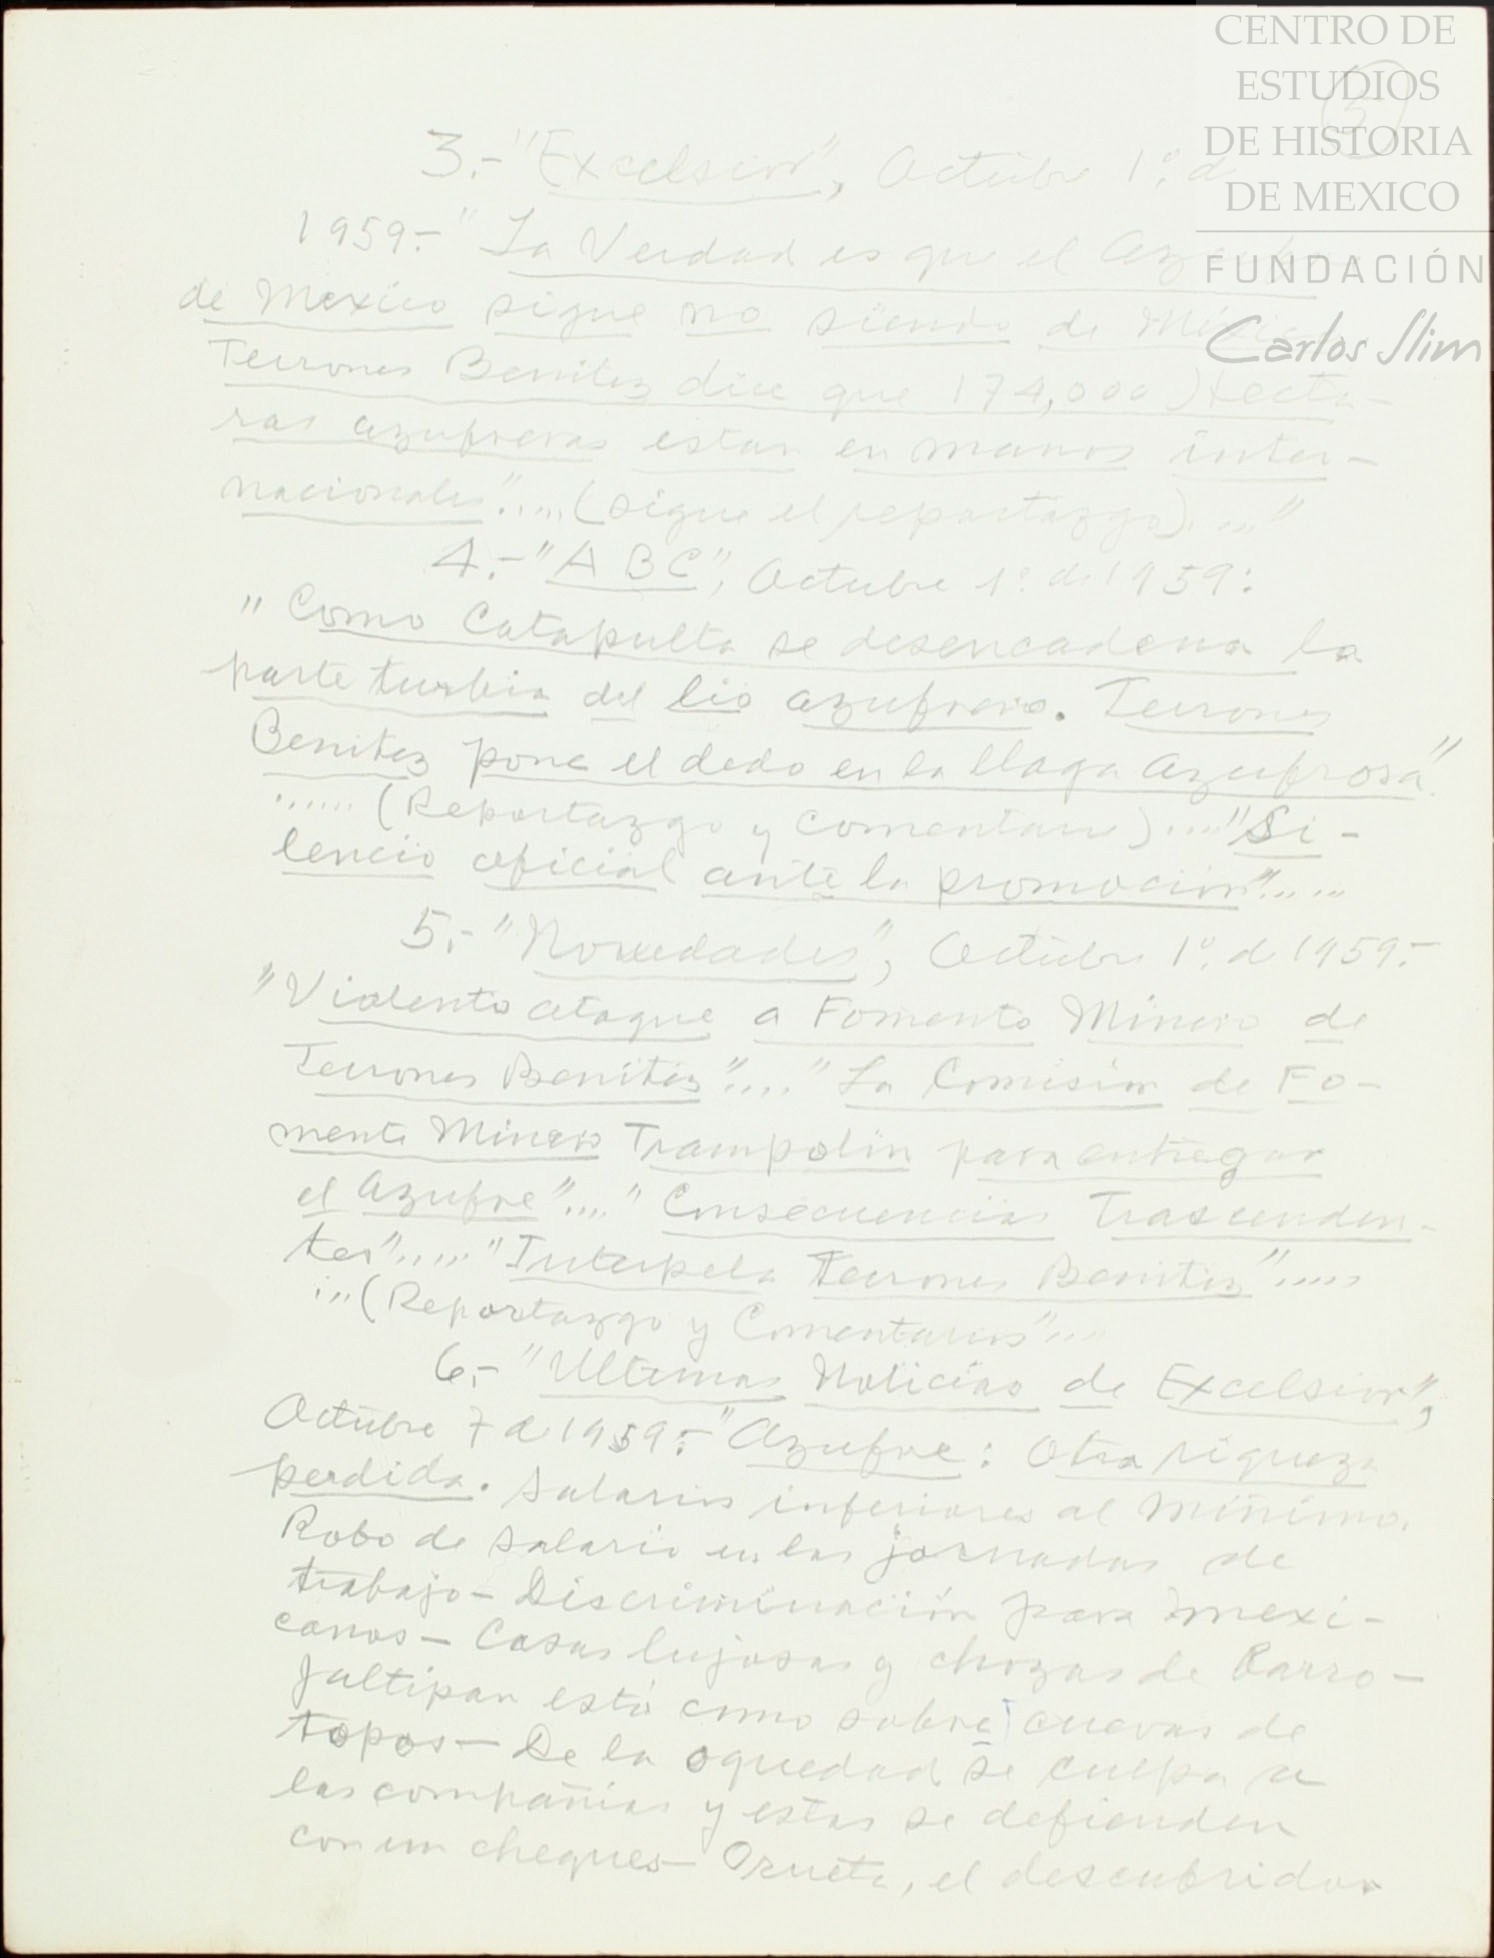 CENTRO DE
ESTUDIOS
DE HISTORIA
DE MEXICO
FUNDACIÓN
Carlos Slim
5
3.- "Excelsior", Octubre 1º. d
1959.- "La Verdad es que el Azufre
de Mexico sigue no siendo de México
Terrones Benitez dice que 174,000 Hecta-
ras azufreras estan en manos inter-
nacionales"..... (sigue el reportazgo)...."
4.- "A B C", Octubre 1º. de 1959:
"Como Catapulta se desencadena la
parte turbia del lio azufrero. Terrones
Benitez pone el dedo en la llaga azufrosa"
...... (Reportazgo y comentario)...."Si-
lencio oficial ante la promoción".....
5.- "Novedades", Octubre 1º. de 1959.-
"Violento ataque a Fomento Minero de
Terrones Benitez"...."La Comisión de Fo-
mento Minero Trampolin para entregar
el azufre"...."Consecuencias Trascenden-
tes"....."Interpela Terrones Benitez".....
...(Reportazgo y Comentarios"...
6.- "Ultimas Noticias de Excelsior",
Octubre 7 de 1959.- "Azufre: Otra riqueza
perdida. Salarios inferiores al minimo.
Robo de salario en las jornadas de
trabajo - Discriminación para mexi-
canos - Casas lujosas y chozas de Barro -
Jaltipan está como sobre cuevas de
topos - De la oquedad se culpa a
las compañias y estas se defienden
con un cheques - Orueta, el descubridor